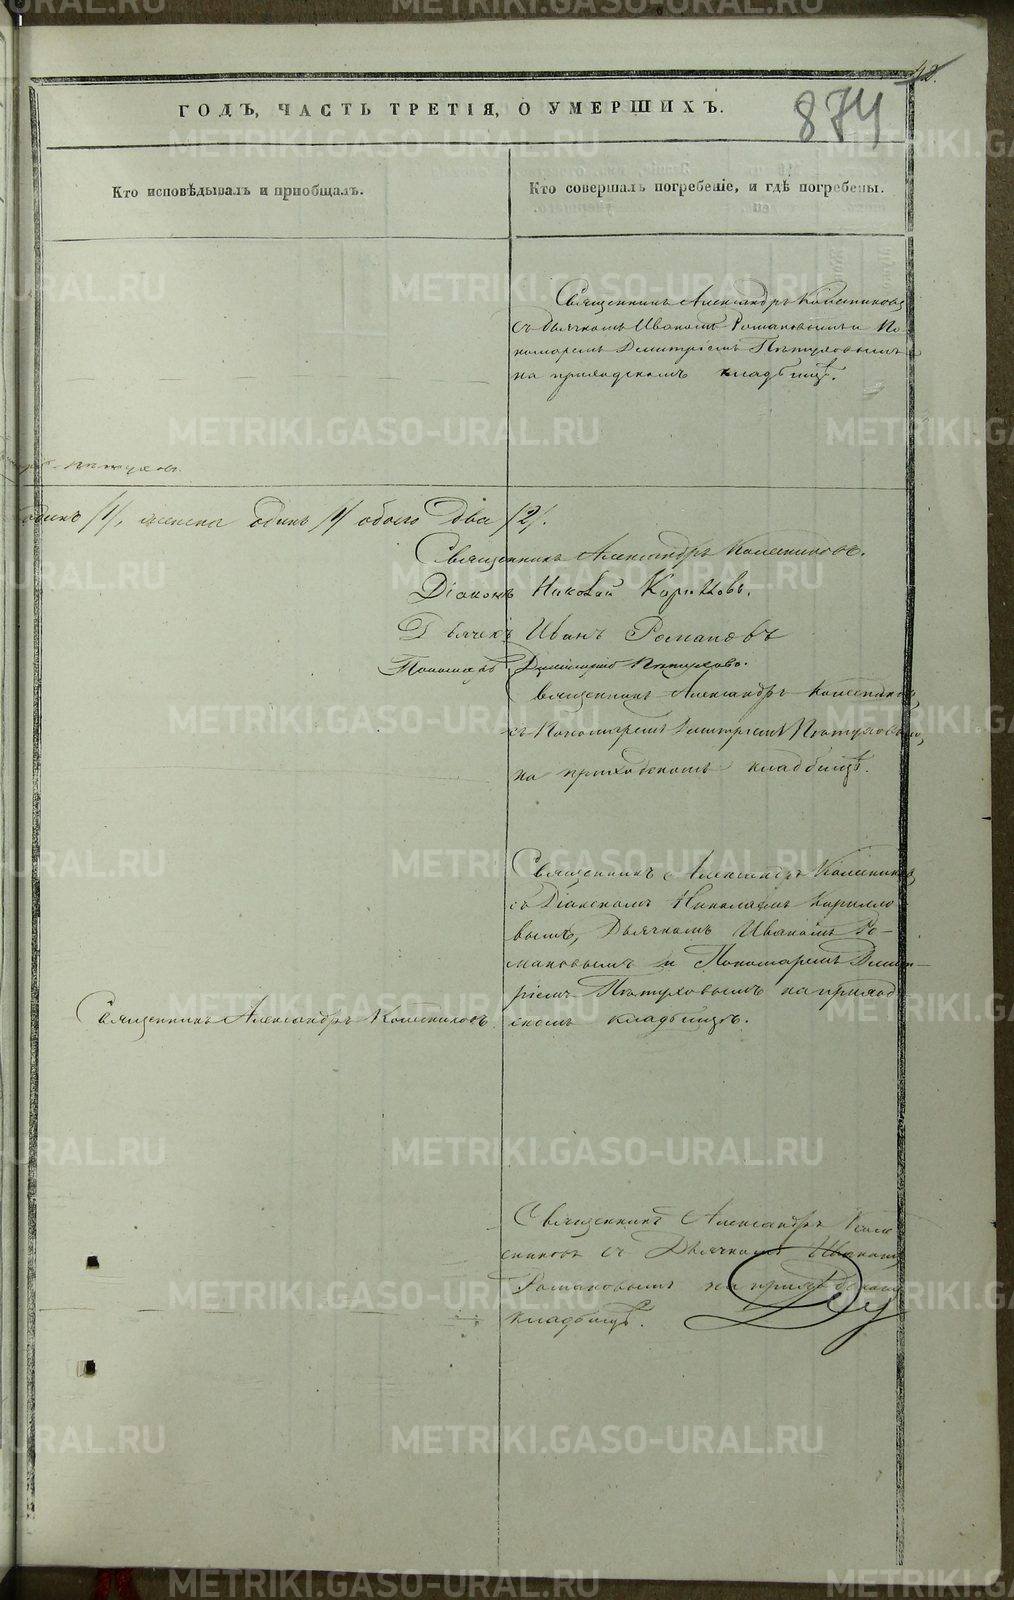 42.
874
ГОДЪ, ЧАСТЬ ТРЕТІЯ, О УМЕРШИХЪ.
Кто исповѣдывалъ и пріобщалъ.
Кто совершалъ погребеніе, и гдѣ погребены.
Священникъ Александръ Колесниковъ
съ Дьячкомъ Иваномъ Романовымъ и По
номаремъ Димитріемъ Пѣтуховымъ
на приходскомъ кладбищѣ.
одинъ /1/, женска одинъ /1/ обоего два /2/.
Священникъ Александръ Колесниковъ.
Діаконъ Николай Кирилловъ.
Дьячекъ Иванъ Романовъ
Пономарь Димитрій Пѣтуховъ.
Священникъ Александръ Колесниковъ
съ Пономаремъ Димитріемъ Пѣтуховымъ,
на приходскомъ кладбищѣ.
Священникъ Александръ Колесниковъ
съ Діакономъ Николаемъ Кирилло
вымъ, Дьячкомъ Иваномъ Ро-
мановымъ и Пономаремъ Димит-
ріемъ Пѣтуховымъ на приход
скомъ кладбищѣ.
Священникъ Александръ Колесниковъ
Священникъ Александръ Коле
сниковъ съ Дьячкомъ Иваномъ
Романовымъ на приходскомъ
кладбищѣ.
METRIKI.GASO-URAL.RU